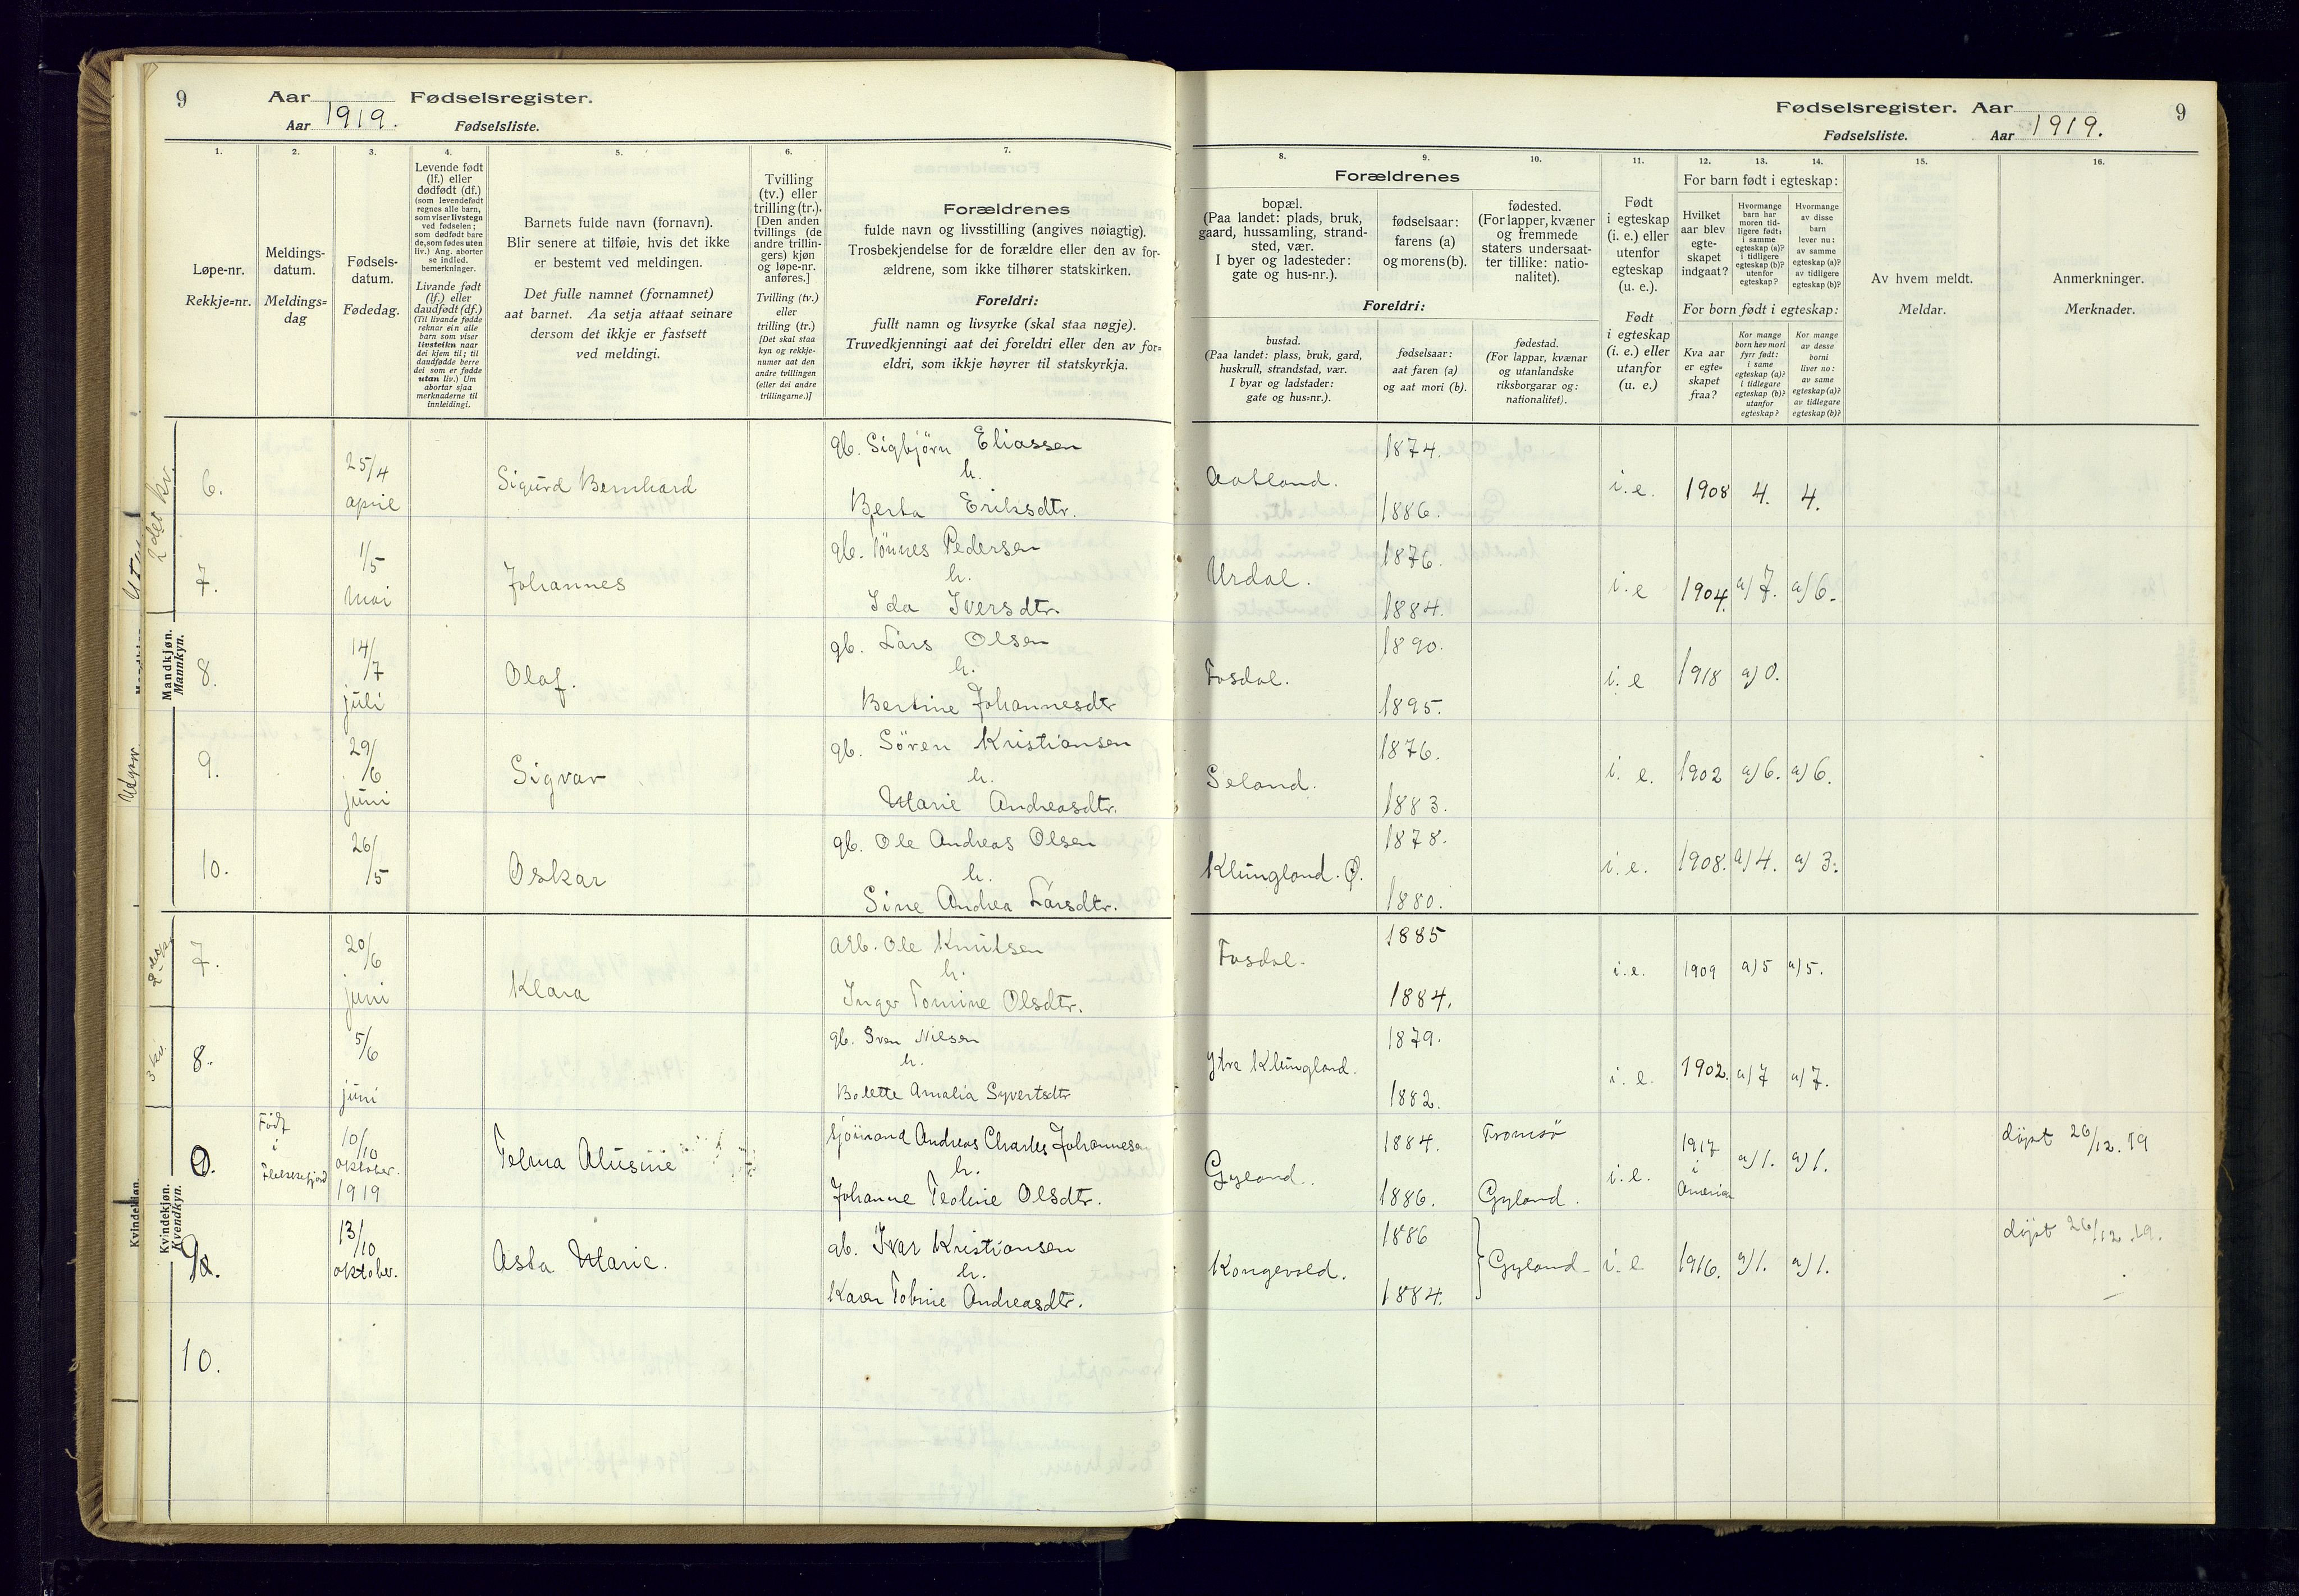 9 Aar 1919. Fødselsregister.
Aar Fødselsliste.
Fødselsregister. Aar 1919. 9
Fødselsliste. Aar
1. 2. 3. 4. 5. 6. 7. 8. 9. 10. 11. 12. 13. 14. 15. 16.
Løpe-nr.
Rekkje=nr.
Meldings-
datum.
Meldings=
dag
Fødsels-
datum.
Fødedag.
Levende født
(lf.) eller
dødfødt (df.)
(som levendefødt
regnes alle barn,
som viser livstegn
ved fødselen;
som dødfødt bare
de, som fødes uten
liv.) Ang. aborter
se indled.
bemerkninger.
Livande født
(lf.) eller
daudfødt (df.)
(Til livande fødde
reknar ein alle
barn som viser
livsteikn naar
dei kjem til; til
daudfødde berre
dei som er fødde
utan liv.) Um
abortar sjaa
merknaderne til
innleidingi.
Barnets fulde navn (fornavn).
Blir senere at tilføie, hvis det ikke
er bestemt ved meldingen.
Det fulle namnet (fornamnet)
aat barnet. Aa setja attaat seinare
dersom det ikkje er fastsett
ved meldingi.
Tvilling
(tv.) eller
trilling (tr.).
[Den anden
tvillings (de
andre trillin-
gers) kjøn
og løpe-nr.
anføres.]
Tvilling (tv.)
eller
trilling (tr.)
[Det skal staa
kyn og rekkje-
numer aat den
andre tvillingen
(eller dei andre
trillingarne.)]
Forældrenes
fulde navn og livsstilling (angives nøiagtig).
Trosbekjendelse for de forældre eller den av for-
ældrene, som ikke tilhører statskirken.
Foreldri:
fullt namn og livsyrke (skal staa nøgje).
Truvedkjenningi aat dei foreldri eller den av for=
eldri, som ikkje høyrer til statskyrkja.
Forældrenes
bopæl.
(Paa landet: plads, bruk,
gaard, hussamling, strand-
sted, vær.
I byer og ladesteder:
gate og hus-nr.).
fødselsaar:
farens (a)
og morens (b).
fødested.
(For lapper, kvæner
og fremmede
staters undersaat-
ter tillike: natio-
nalitet).
Foreldri:
bustad.
(Paa landet: plass, bruk, gard,
huskrull, strandstad, vær.
I byar og ladstader:
gate og hus=nr.).
fødselsaar:
aat faren (a)
og aat mori (b).
fødestad.
(For lappar, kvænar
og utanlandske
riksborgarar og:
nationalitet).
Født
i egteskap
(i. e.) eller
utenfor
egteskap
(u. e.).
Født
i egteskap
(i. e.) eller
utanfor
(u. e.)
For barn født i egteskap:
Hvilket
aar blev
egte-
skapet
indgaat?
Hvormange
barn har
moren tid-
ligere født:
i samme
egteskap (a)?
i tidligere
egteskap (b)?
utenfor
egteskap?
Hvormange
av disse
barn
lever nu:
av samme
egteskap (a)?
av tidligere
egteskap (b)?
For born født i egteskap:
Kva aar
er egte=
skapet
fraa?
Kor mange
born hev mori
fyrr født:
i same
egteskap (a)?
i tidlegare
egteskap (b)?
utanfor
egteskap?
Kor mange
av desse
borni
liver no:
av same
egteskap (a)?
av tidlegare
egteskap (b)?
Av hvem meldt.
Meldar.
Anmerkninger.
Merknader.
2 det kv.
Mandkjøn.
Mannkyn.
6. 25/4 april Sigurd Bernhard gb. Sigbjörn Eliassen h. Berta Eriksdtr. 1874. 1886. i.e. 1908 4. 4.
7. 1/5 mai Johannes gb. Tönnes Pedersen h. Ida Iversdtr. Urdal. 1876. 1884. i.e 1904. a) 7. a) 6.
8. 14/7 juli Olaf. gb. Lars Olsen h. Bertine Johannesdtr Fosdal. 1890. 1895. i.e 1918 a) 0.
9. 29/6 juni Sigvar gb. Sören Kristiansen h. Marie Andreasdtr. Seland. 1876. 1883. i. e. 1902 a) 6. a) 6.
10. 26/5 Oskar gb. Ole Andreas Olsen h. Sine Andrea Larsdtr. Klungland. Ø. 1878. 1880. i.e. 1908. a) 4. a) 3.
7. 20/6 juni Klara arb. Ole Knutsen h. Inger Tomine Olsdtr. Fosdal. 1885 1884. i.e. 1909 a) 5 a) 5.
3 kv.
8. 5/6 juni gb. Sven Nilsen h. Bolette Amalia Syvertsdtr Ytre Klungland. 1879. 1882. i. e. 1902. a) 7 a) 7.
Kvindekjøn.
Kvendkyn.
Født i Flekkefjord 10/10 oktober. 1919 Telma Alusine sjömand Andreas Charles Johannesen h. Johanne Teoline Olsdtr. Gyland. 1884. 1886. Tromsø Gyland. i.e. 1917 i Amerika a) 1. a) 1. døpt 26/12.19
13/10 oktober. Asta Marie. gb. Ivar Kristiansen h. Karen Tobine Andreasdtr. Kongevold. 1886 1884. Gyland i. e 1916. a) 1. a) 1. døpt 26/12.19.
10.
Kvindekjøn.